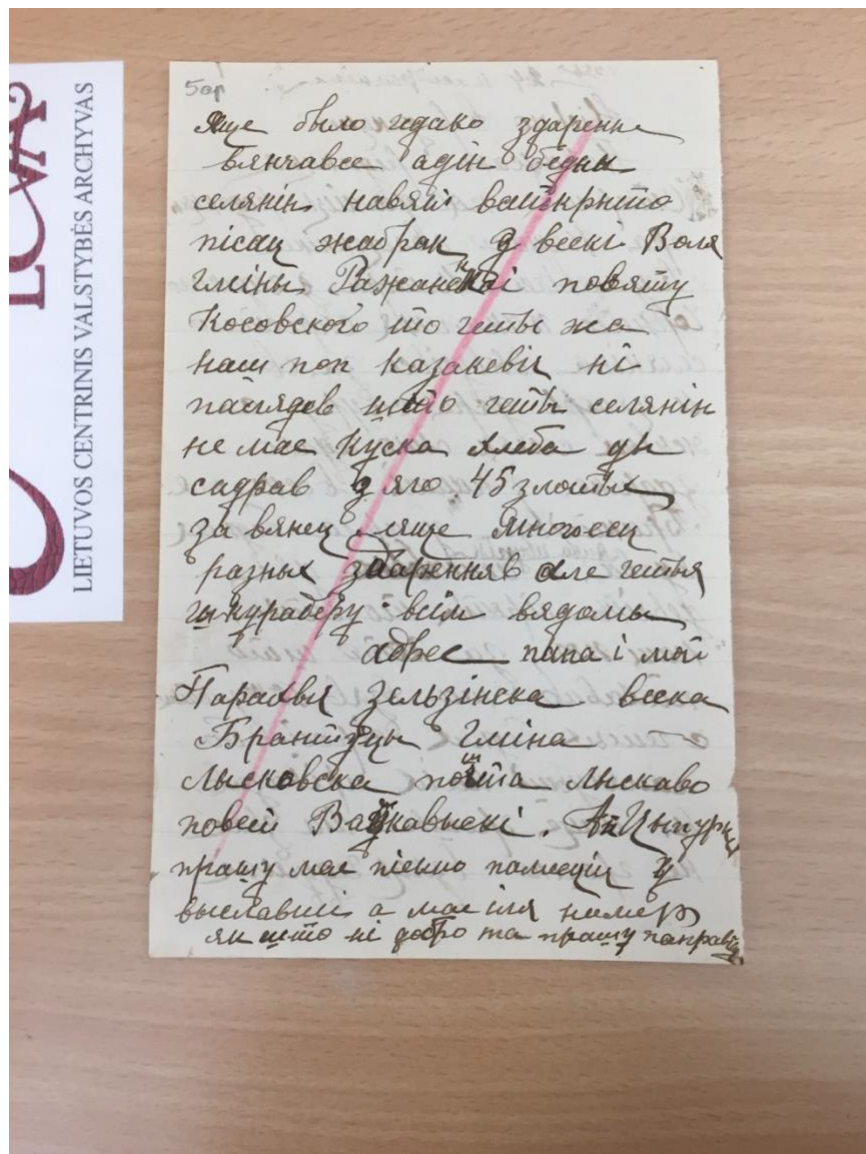 LCVA
LIETUVOS CENTRINIS VALSTYBĖS ARCHYVAS
5ар
Яще было гедако здаренне
вянчавсе адін бедны
селянін навят
пісац жабрак у вескі Воля
гміны Ражанской повяту
Косовского што геты жа
наш поп Казакевіч ні
паглядев што геты селянін
не мае куска хлеба ды
садрав з яго 45 злотых
за вянец яще многоесц
разных здаренняв але гетыя
всім вядомы
адрес папа і мой
Парахвія Зельзінска веска
Брантуцы Гміна
Лысковска пошта Лыскаво
повет Ваўкавыскі.
прашу мае пісьмо памесціц у
а мае іля намер
як што ні добро та прашу паправіць